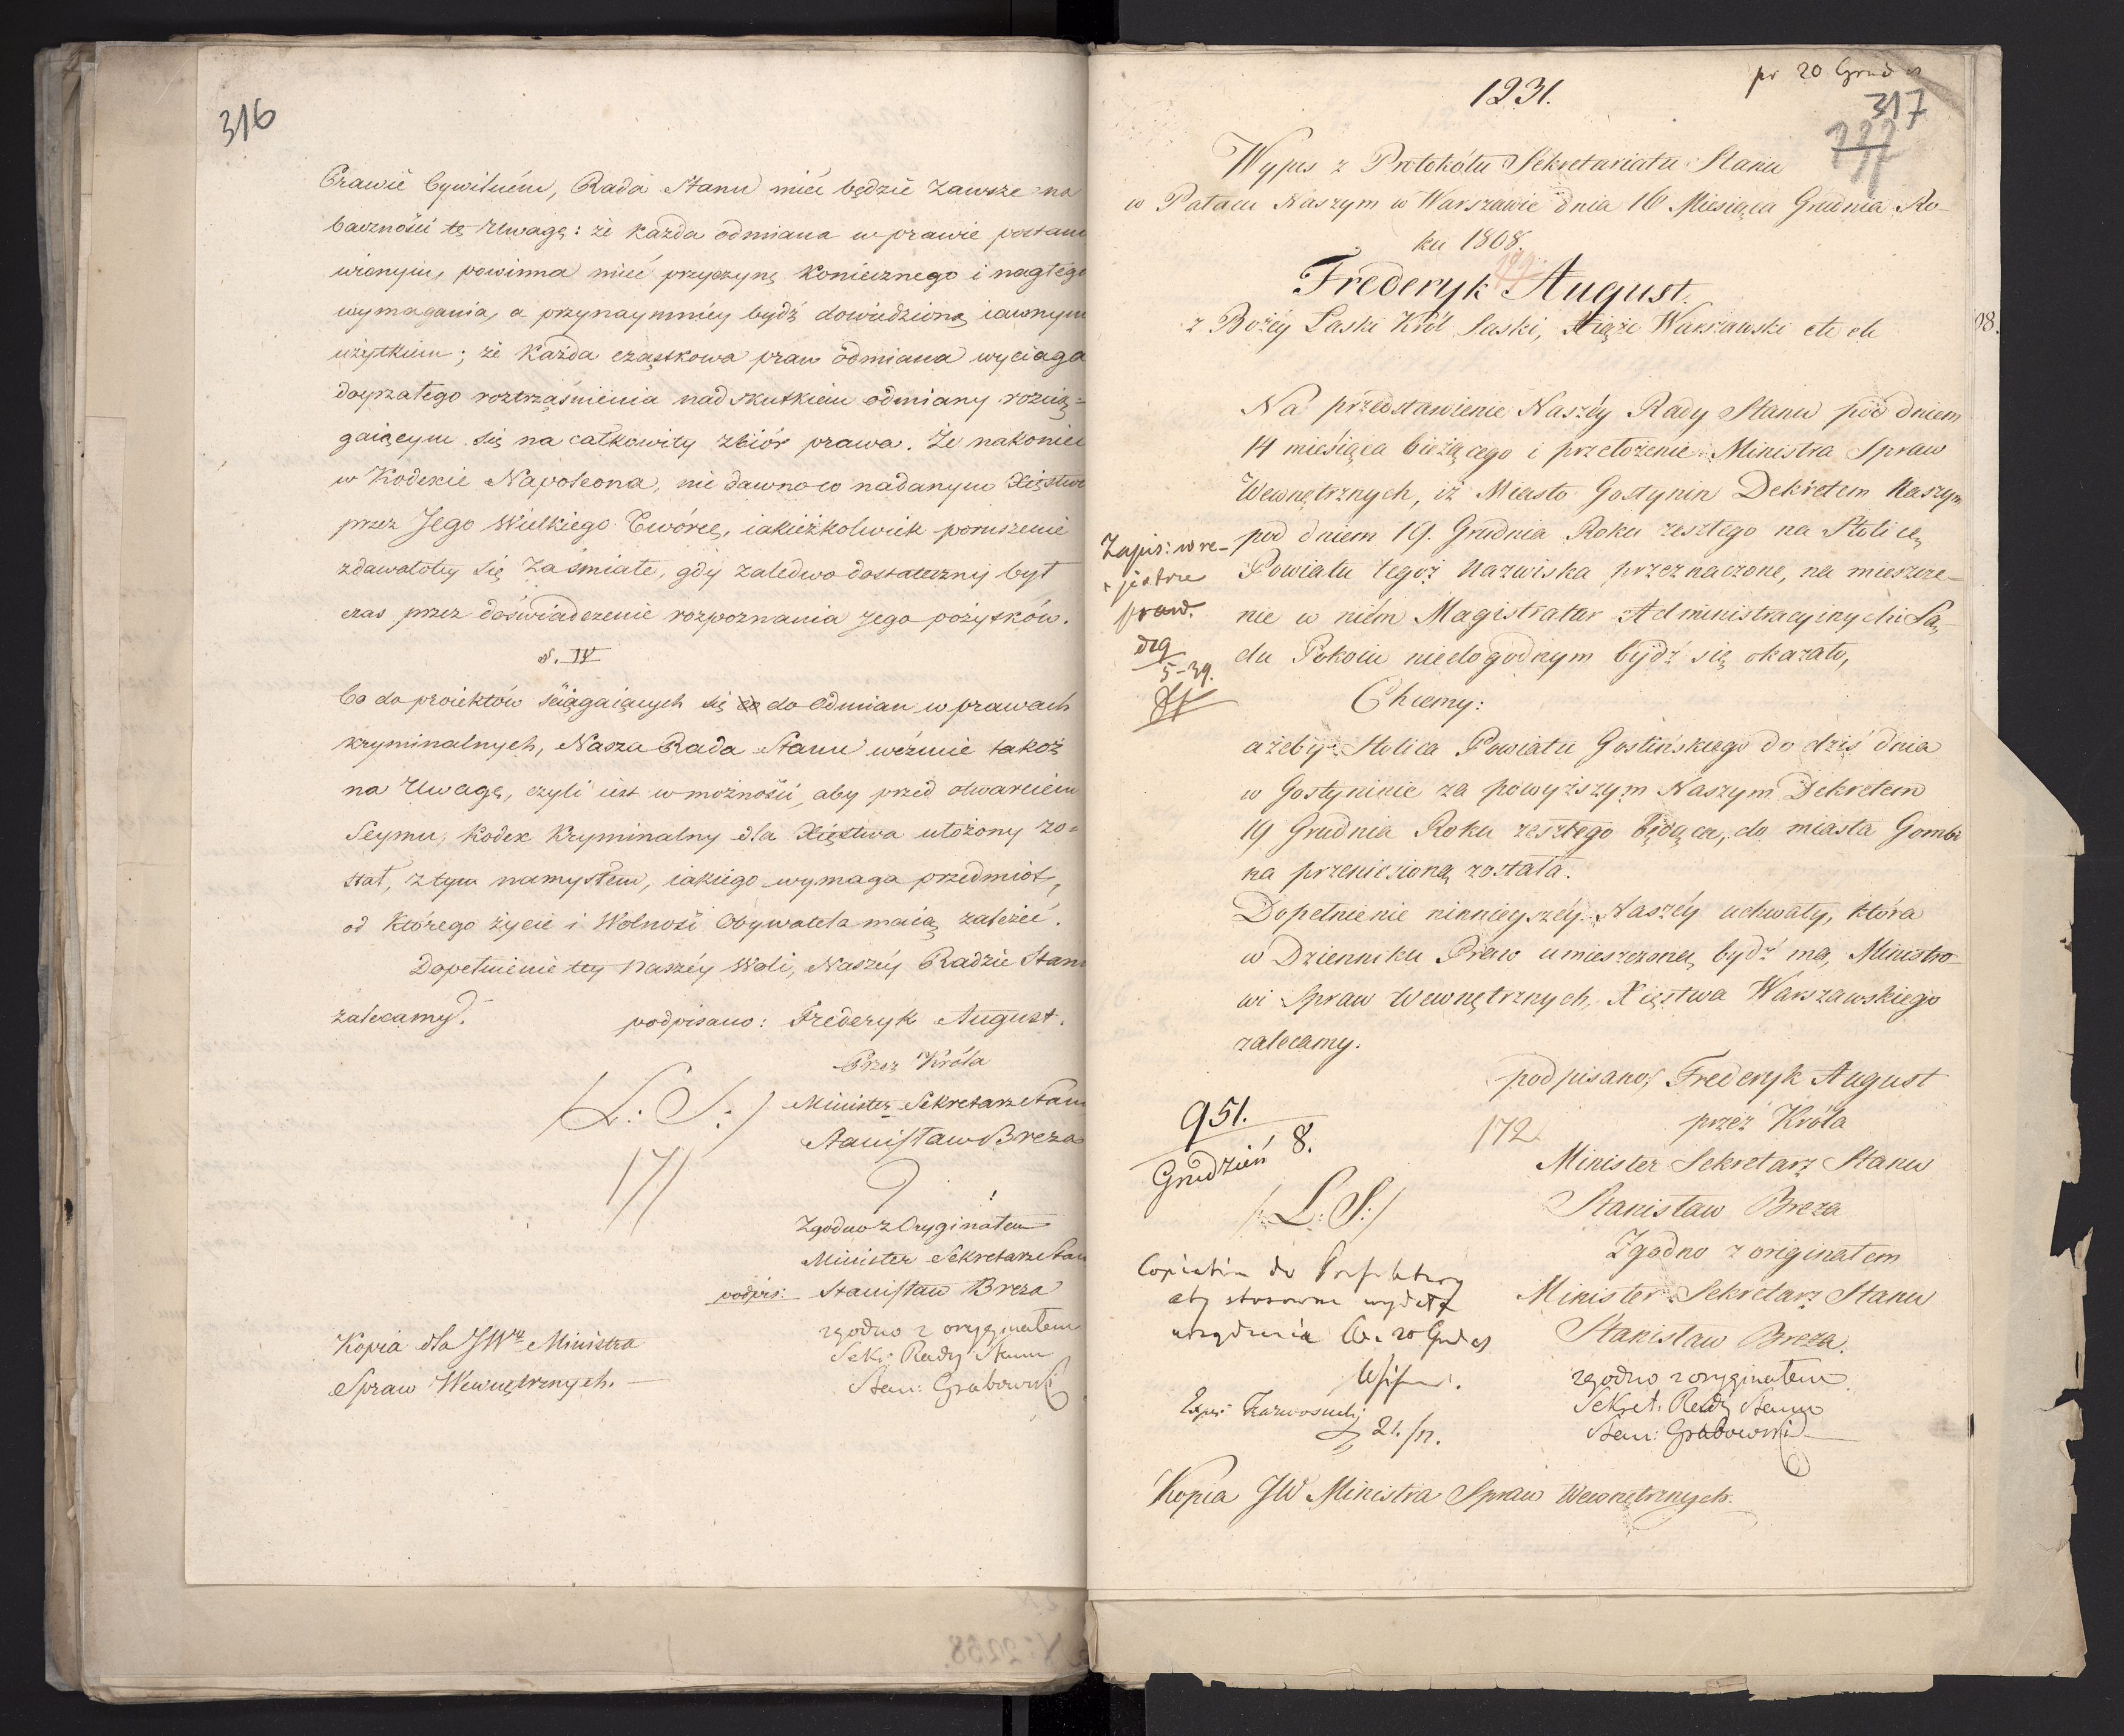 316
Prawie Cywilném, Rada Stanu mieć będzie zawsze na
baczności tę Uwagę: że każda odmiana w prawie postano
wionym, powinna mieć przyczynę koniecznego i nagłego
wymagania, a przynaymniéy bydź dowiedzioną iawnym
użytkiem; że każda cząstkowa praw odmiana wyciąga
doyrzałego roztrząśnienia nad skutkiem odmiany rozcią=
gaiącym się na całkowity zbiór prawa. Że nakoniec
w Kodexie Napoleona, nie dawno co nadanym Xięstwu
przez Jego Wielkiego Twórcę, iakieżkolwiek poruszenie
zdawałoby się za śmiałe, gdy zaledwo dostateczny był
czas przez doświadczenie rozpoznania Jego pożytków.
§. IV
Co do proiektów ściągaiących się do Odmian w prawach
kryminalnych, Nasza Rada Stanu weźmie takoż
na Uwagę, czyli iest w możności, aby przed otwarciem
Seymu, Kodex Kryminalny dla Xięstwa ułożony zo=
stał, z tym namysłem, iakiego wymaga przedmiot,
od którego życie i Wolność Obywatela maią zależeć.
Dopełnienie tey Naszéy Woli, Naszéy Radzie Stanu
zalecamy.
podpisano: Frederyk August.
Przez Króla
/L: S:/ Minister Sekretarz Stanu
Stanisław Breza
171
Zgodno z Oryginałem
Minister Sekretarz Stanu
podpis: Stanisław Breza
zgodno z oryginałem
Sekr: Rady Stanu
Stan: Grabowski
Kopia dla JWo Ministra
Spraw Wewnętrznych.
pr 20 Grud
1231.
317
Wypis z Protokółu Sekretariatu Stanu
w Pałacu Naszym w Warszawie dnia 16 Miesiąca Grudnia Ro-
ku 1808.
Frederyk August.
z Bożéy Łaski Król Saski, Xiąże Warszawski etc etc
08.
Na przedstawienie Naszéy Rady Stanu pod dniem
14 miesiąca bieżącego i przełożenie Ministra Spraw
Wewnętrznych, iż Miasto Gostynin Dekretem Naszym
pod dniem 19. Grudnia Roku zeszłego na Stolicę
Powiatu tegoż Nazwiska przeznaczone, na mieszcze-
nie w niém Magistratur Administracyinych i Są
du Pokoiu niedogodnym bydź się okazało,
Zapis: w re-
jestrze
praw.
5-39.
Chcemy:
ażeby Stolica Powiatu Gostińskiego do dziś dnia
w Gostyninie za powyższym Naszym Dekretem
19 Grudnia Roku zeszłego będąca, do miasta Gombi
na przeniesioną została.
Dopełnienie ninnieyszéy Naszéy uchwały, która
w Dzienniku Praw umieszczoną bydź ma, Ministro-
wi Spraw Wewnętrznych Xięstwa Warszawskiego
zalecamy.
podpisano/ Frederyk August
951.
172.
przez Króla
Grudzień 8.
Minister Sekretarz Stanu
/:L: S:/
Stanisław Breza
Zgodno z originałem
Minister Sekretarz Stanu
Stanisław Breza.
aby stosowne wydał
zgodno z oryginałem
Sekret: Rady Stanu
21./12.
Stan: Grabowski
Kopia JW Ministra Spraw Wewnętrznych.